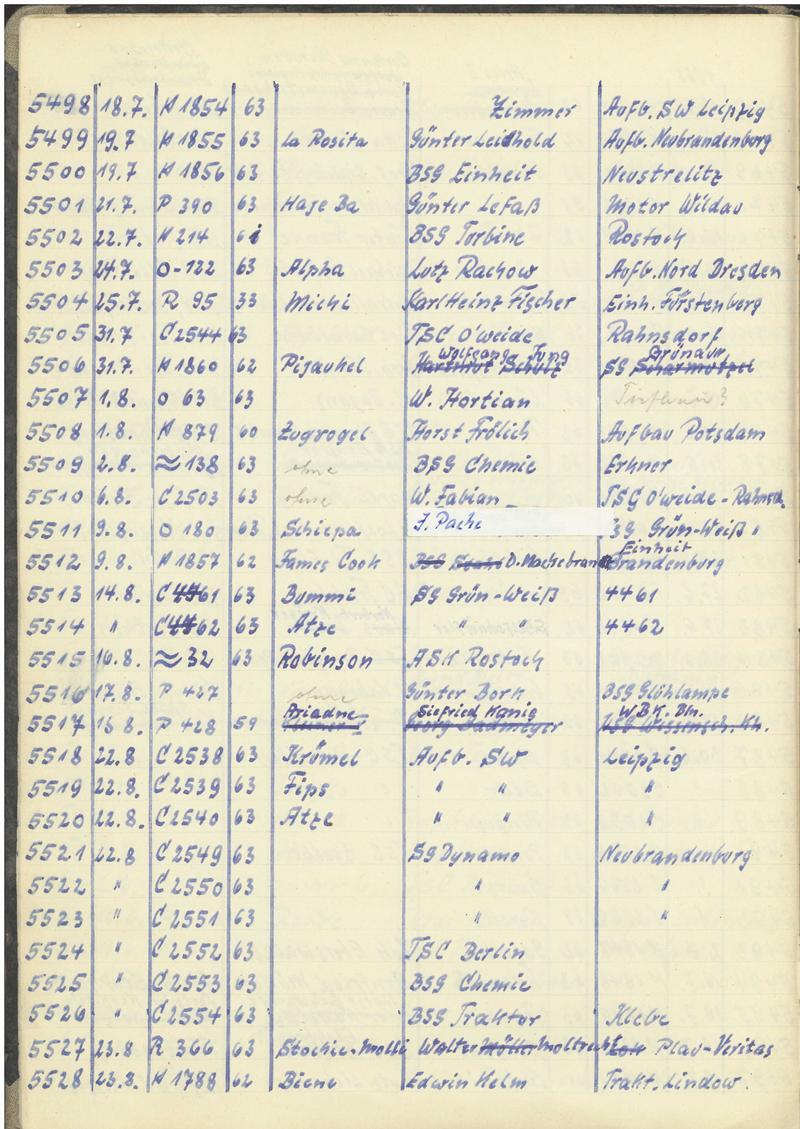 5498 18.7. H 1854 63 Zimmer Aufb. SW Leipzig
5499 19.7 H 1855 63 La Rosita Günter Leidhold Aufb. Neubrandenburg
5500 19.7 H 1856 63 BSG Einheit Neustrelitz
5501 21.7. P 390 63 Haje Ba Günter Lefaß Motor Wildau
5502 22.7. H 214 61 BSG Turbine Rostock
5503 24.7. O-122 63 Alpha Lutz Rachow Aufb. Nord Dresden
5504 25.7. R 95 33 Michi Karl Heinz Fischer Einh. Fürstenberg
5505 31.7 C 2544 63 TSC O'weide Rahnsdorf
Wolfgang Jung Grünau
5506 31.7. H 1860 62 Pijauhel Hartmut Schulz SG Scharmützel
5507 1.8. O 63 63 W. Hortian Tiefbau?
5508 1.8. H 879 60 Zugvogel Horst Frölich Aufbau Potsdam
5509 2.8. ≈ 138 63 ohne BSG Chemie Erkner
5510 6.8. C 2503 63 ohne W. Fabian TSG O'weide-Rahnsd.
5511 9.8. O 180 63 Schiepa J. Pache SG Grün-Weiß "
Einheit
5512 9.8. H 1857 62 James Cook BSG Stahl D. Machebrandt Brandenburg
5513 14.8. C 4461 63 Bummi SG Grün-Weiß 4461
5514 " C 4462 63 Atze " " 4462
5515 16.8. ≈ 32 63 Robinson ASK Rostock
5516 17.8. P 427 ohne Günter Bork BSG Glühlampe
Ariadne Siefried König WBK. Bln.
5517 16.8. P 428 59 Georg Sadmeyer HSG Wissensch. Kh.
5518 22.8 C 2538 63 Krümel Aufb. SW Leipzig
5519 22.8. C 2539 63 Fips " " "
5520 22.8. C 2540 63 Atze " " "
5521 22.8 C 2549 63 SG Dynamo Neubrandenburg
5522 " C 2550 63 " "
5523 " C 2551 63 " "
5524 " C 2552 63 TSC Berlin
5525 " C 2553 63 BSG Chemie
5526 " C 2554 63 BSG Traktor Klebe
5527 23.8 R 366 63 Stochie-Molli Walter Möller Moltrecht Lok Plau-Veritas
5528 23.8. H 1788 62 Biene Edwin Helm Trakt. Lindow.